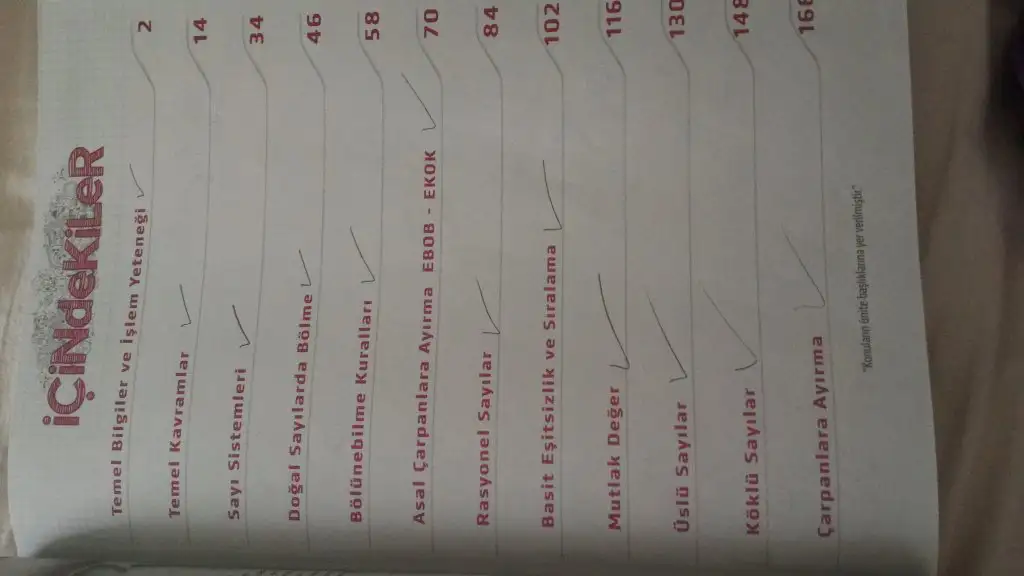 İÇİNDEKİLER
Temel Bilgiler ve İşlem Yeteneği 2
Temel Kavramlar 14
Sayı Sistemleri 34
Doğal Sayılarda Bölme 46
Bölünebilme Kuralları 58
Asal Çarpanlara Ayırma EBOB - EKOK 70
Rasyonel Sayılar 84
Basit Eşitsizlik ve Sıralama 102
Mutlak Değer 116
Üslü Sayılar 130
Köklü Sayılar 148
Çarpanlara Ayırma 166
"Konuların ünite başlıklarına yer verilmiştir."